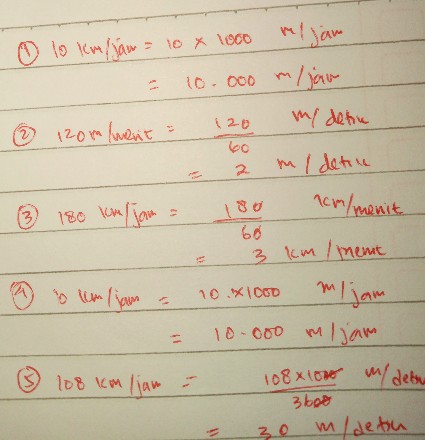 ① 10 km/jam = 10 × 1000 m/jam
= 10.000 m/jam
② 120 m/menit = 120/60 m/detik
= 2 m/detik
③ 180 km/jam = 180/60 km/menit
= 3 km/menit
④ 10 km/jam = 10 × 1000 m/jam
= 10.000 m/jam
⑤ 108 km/jam = 108 × 1000/3600 m/detik
= 30 m/detik